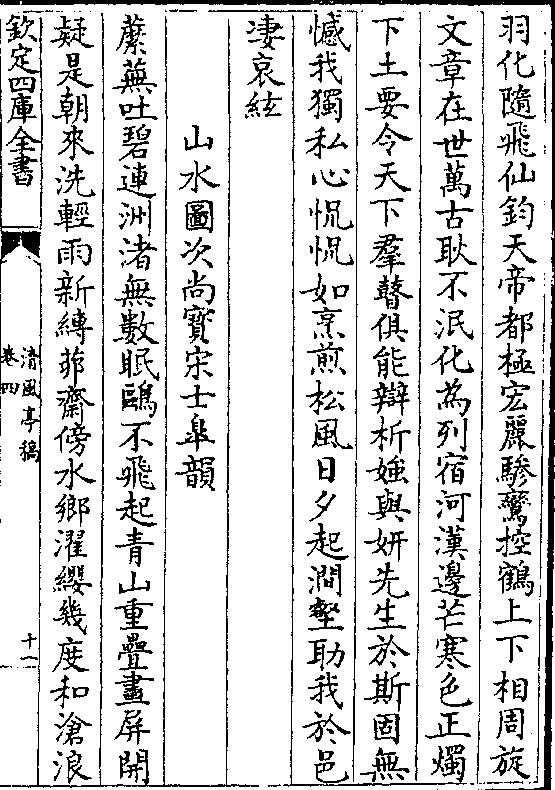 羽化隨飛仙鈞天帝都極宏麗驂鸞控鶴上下相周旋
文章在世萬古耿不泯化為列宿河漢邊芒寒色正燭
下土要令天下羣瞽俱能辯析媸與妍先生於斯固無
憾我獨私心怳怳如烹煎松風日夕起澗壑助我於邑
凄哀絃
山水圖次尚寳宋士臯韻
蘪蕪吐碧連洲渚無數眠鷗不飛起青山重疊畫屏開
疑是朝來洗輕雨新縳茆齋傍水鄉濯纓幾度和滄浪
欽定四庫全書
清風亭稿
卷四
十一